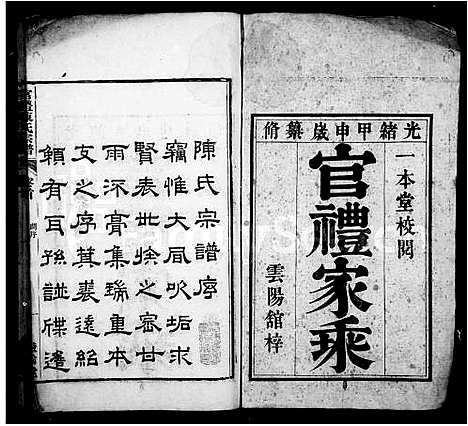 光緒甲申歲纂脩
一本堂校閱
官禮家乘
雲陽舘梓
陳氏宗譜序
竊惟大風吹垢求
賢表世涂之密甘
雨深膏集瑞重本
支之序箕裘遠紹
領有耳孫譜牒遙